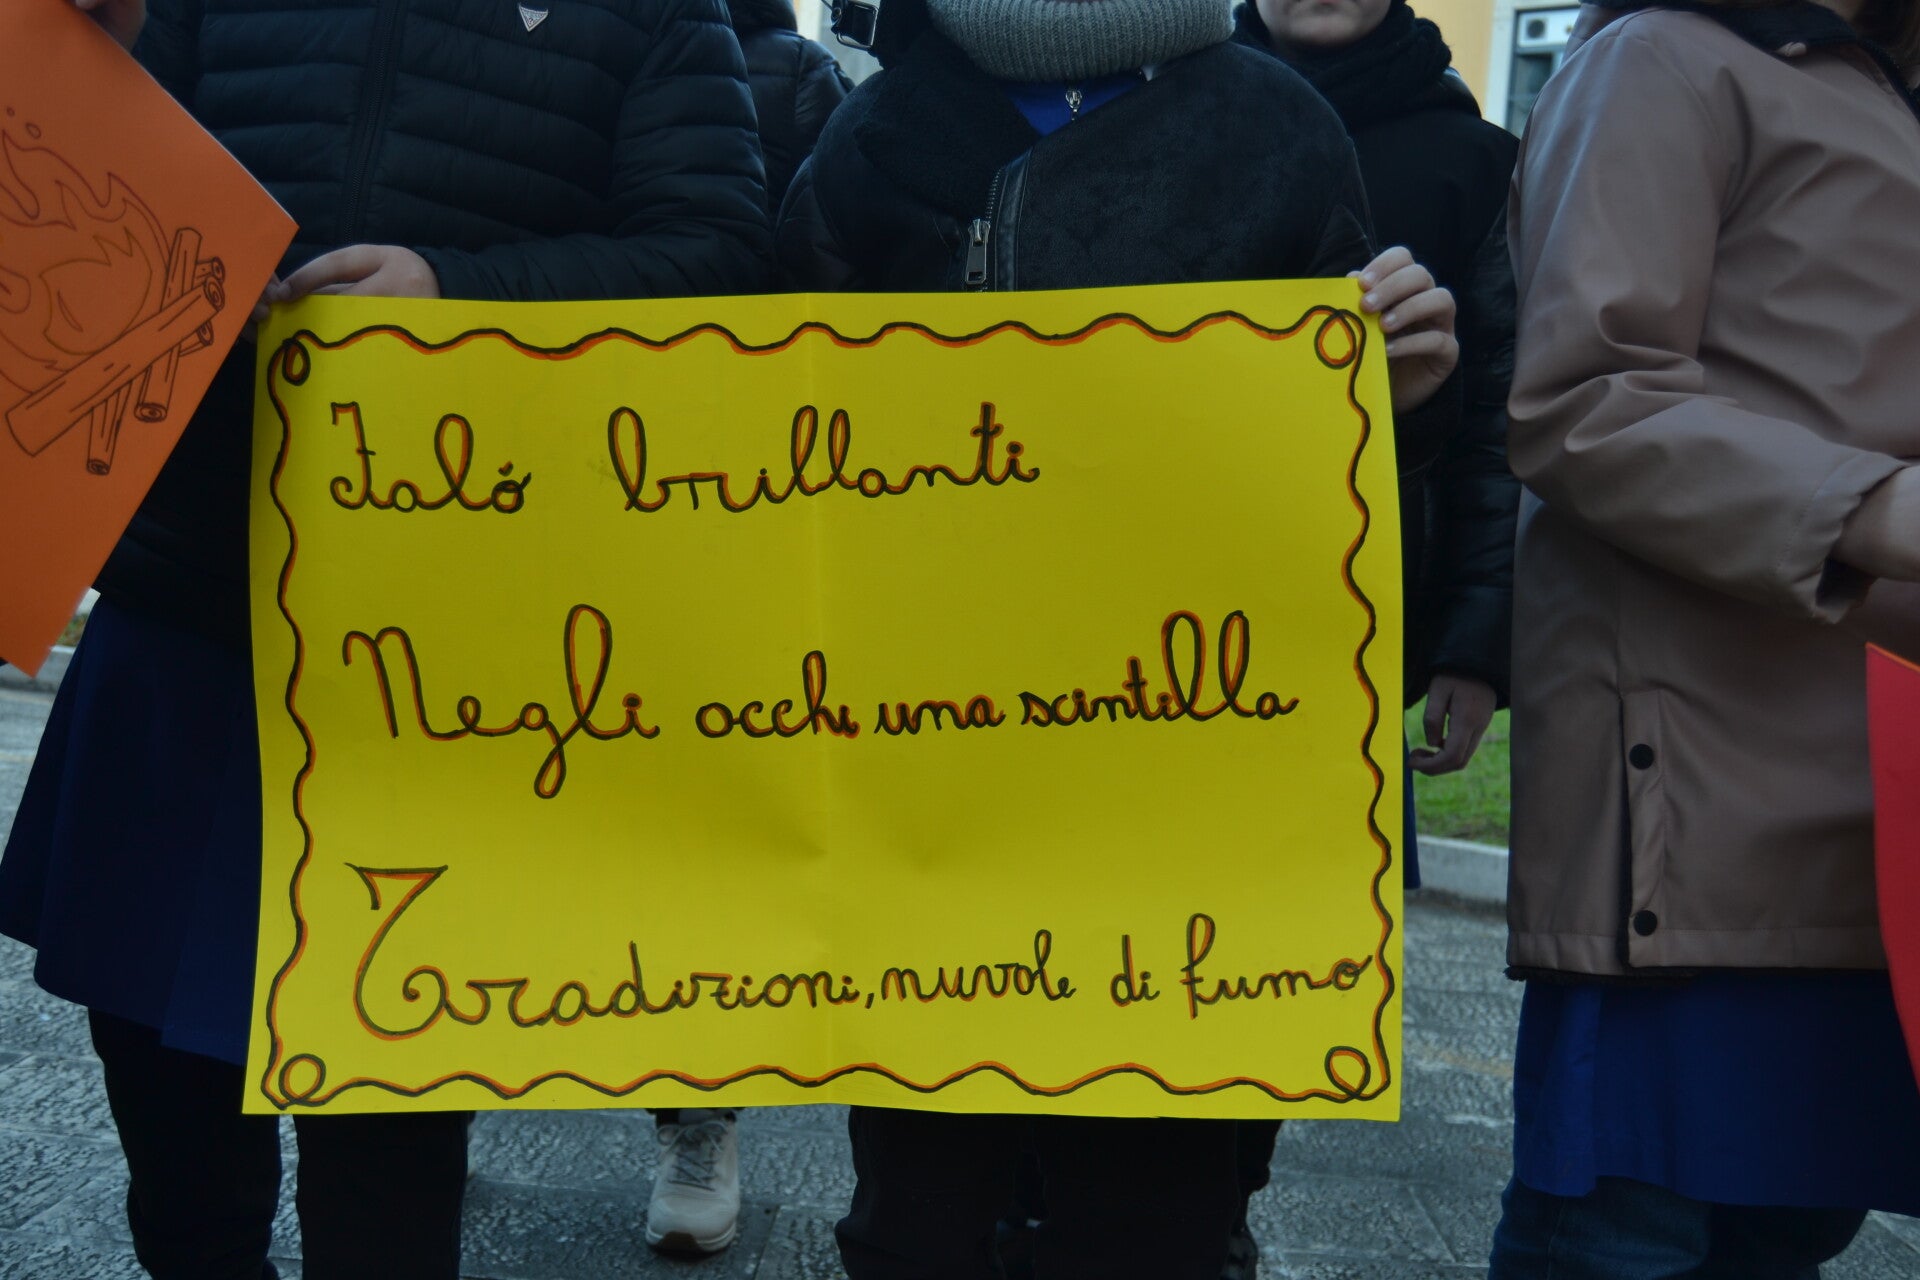 Faló brillanti
Negli occhi una scintilla
Tradizioni, nuvole di fumo